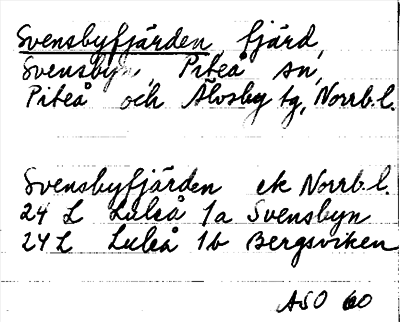 Svensbyfjärden, fjärd,
Svensbyn, Piteå sn,
Piteå och Älvsby tg, Norrb.l.
Svensbyfjärden ek Norrb.l.
24 L Luleå 1a Svensbyn
24 L Luleå 1b Bergsviken
ASO 60